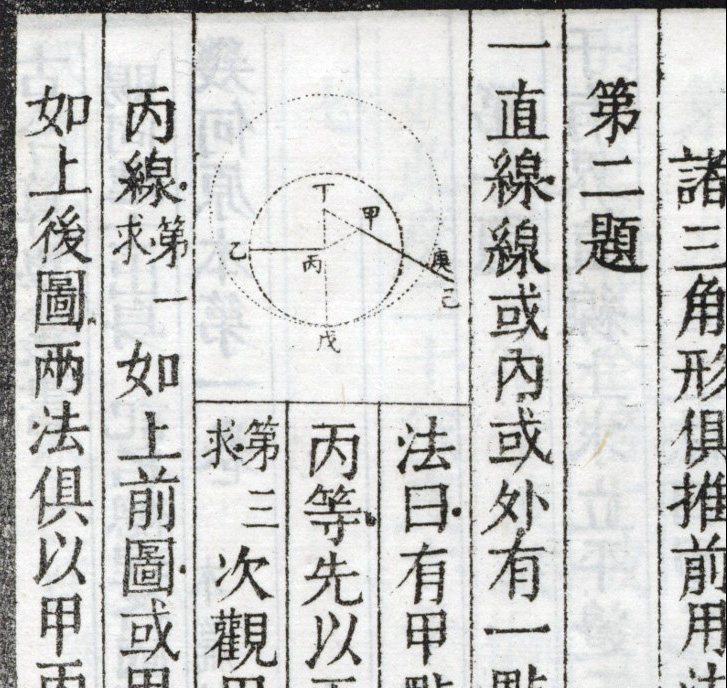 諸三角形俱推前用法
第二題
一直線線或內或外有一點
法曰有甲點
丙等先以
第三求次觀甲
丁
甲
乙
丙
庚
己
戊
丙線第一求如上前圖或甲
如上後圖兩法俱以甲丙